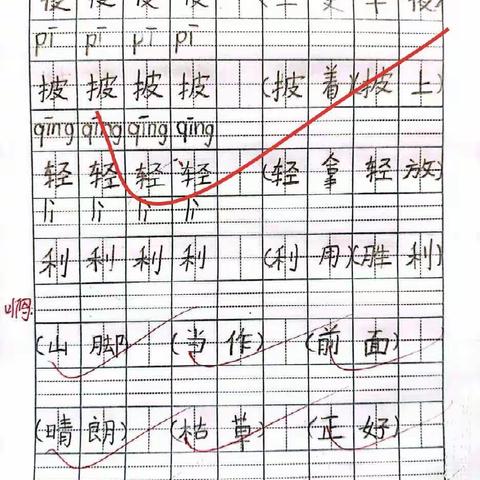 pī pī pī pī
披 披 披 披 (披 着)(披 上)
qīng qīng qīng qīng
轻 轻 轻 轻 (轻 拿 轻 放)
lì lì lì lì
利 利 利 利 (利 用)(胜 利)
(山 脚) (当 作) (前 面)
(晴 朗) (枯 草) (正 好)